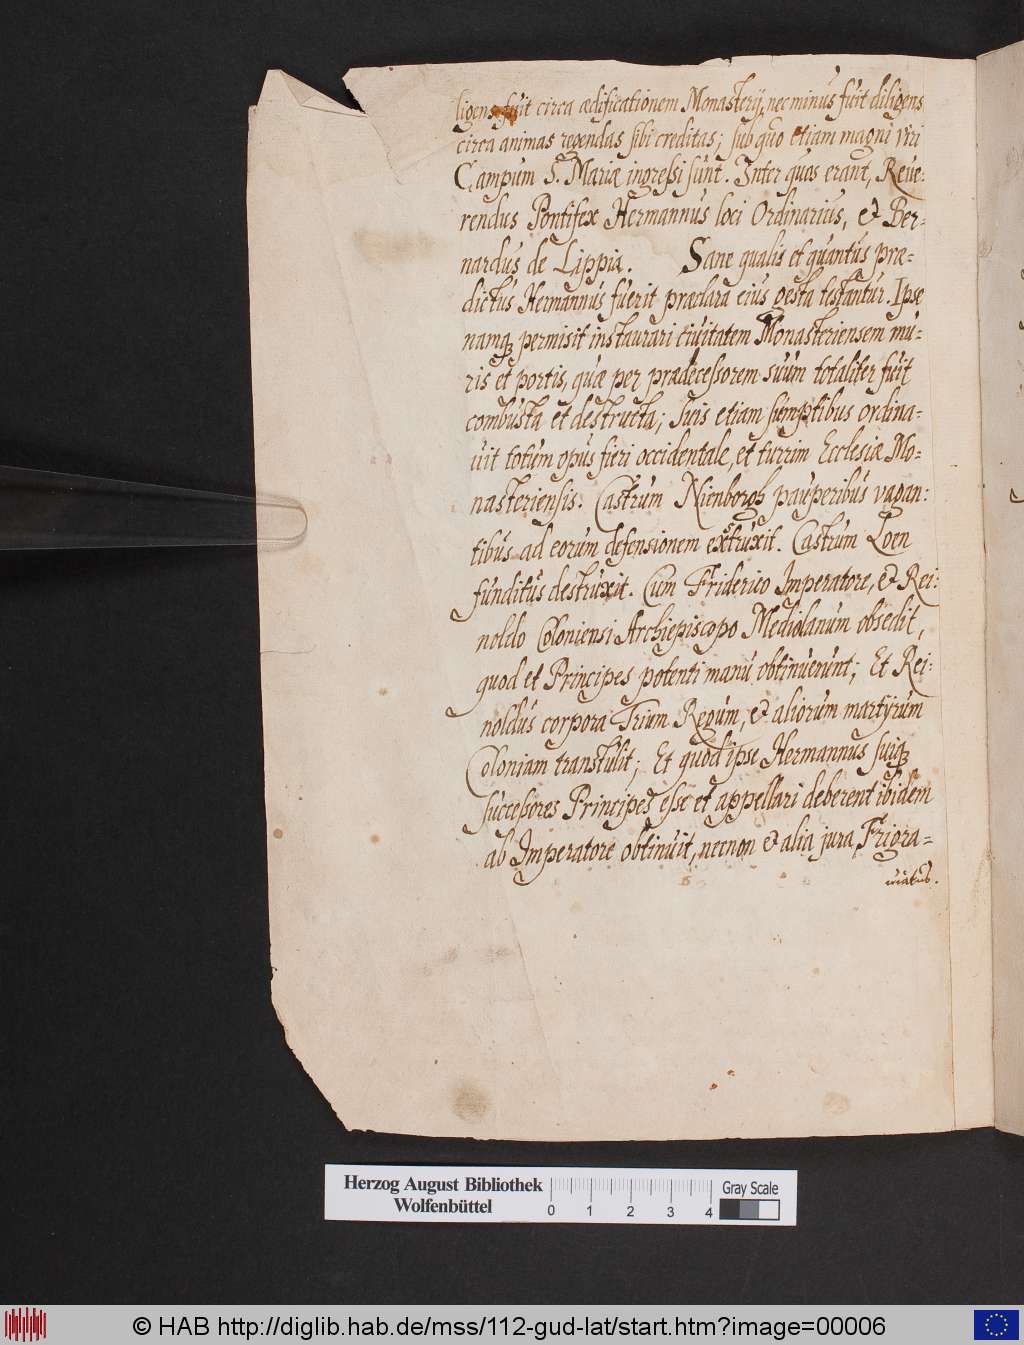 ligens fuit circa ædificationem Monasterij, nec minus fuit diligens
circa animas regendas sibi creditas; sub quo etiam magni viri
Campum S. Mariæ ingressi sunt. Inter quos erant, Reue:
rendus Pontifex Hermannus loci Ordinarius, & Ber-
nardus de Lippia. Sane qualis et quantus præ-
dictus Hermannus fuerit præclara eius gesta testantur. Ipse
namq; permisit instaurari ciuitatem Monasteriensem mu-
ris et portis, quæ per prædecessorem suum totaliter fuit
combusta et destructa; suis etiam sumptibus ordina-
uit totum opus fieri occidentale, et turrim Ecclesiæ Mo-
nasteriensis. Castrum Nienborgh pauperibus vagan:
tibus ad eorum defensionem exstruxit. Castrum Loen
funditus destruxit. Cum Friderico Imperatore, & Rei:
noldo Coloniensi Archiepiscopo Mediolanum obsedit,
quod et Principes potenti manu obtinuerunt; Et Rei:
noldus corpora Trium Regum, & aliorum martyrum
Coloniam transtulit; Et quod ipse Hermannus suiq;
successores Principes esse et appellari deberent ibidem
ab Imperatore obtinuit, necnon & alia jura, Frigra-
uiatus.
Herzog August Bibliothek
Wolfenbüttel
0 1 2 3 4
Gray Scale
© HAB http://diglib.hab.de/mss/112-gud-lat/start.htm?image=00006